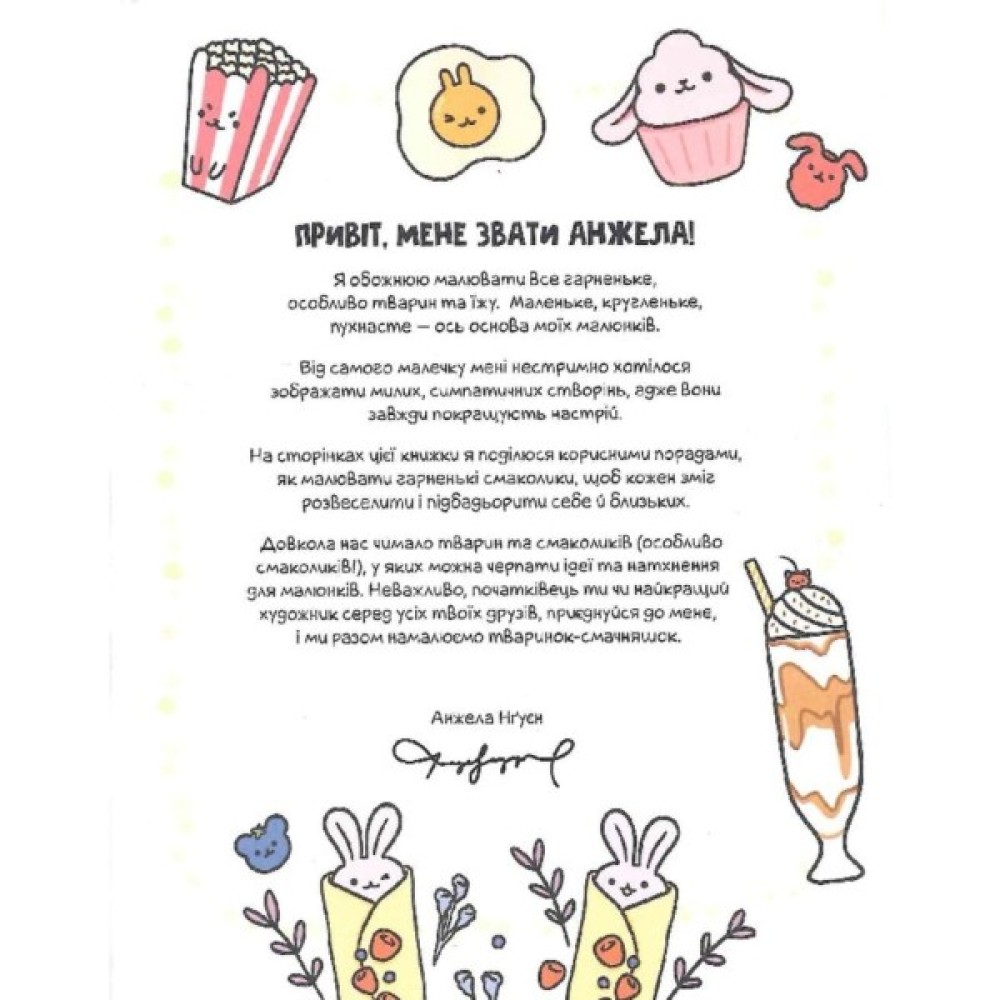 ПРИВІТ, МЕНЕ ЗВАТИ АНЖЕЛА!
Я обожнюю малювати все гарненьке,
особливо тварин та їжу. Маленьке, кругленьке,
пухнасте — ось основа моїх малюнків.
Від самого малечку мені нестримно хотілося
зображати милих, симпатичних створінь, адже вони
завжди покращують настрій.
На сторінках цієї книжки я поділюся корисними порадами,
як малювати гарненькі смаколики, щоб кожен зміг
розвеселити і підбадьорити себе й близьких.
Довкола нас чимало тварин та смаколиків (особливо
смаколиків!), у яких можна черпати ідеї та натхнення
для малюнків. Неважливо, початківець ти чи найкращий
художник серед усіх твоїх друзів, приєднуйся до мене,
і ми разом намалюємо тваринок-смачняшок.
Анжела Нґуєн